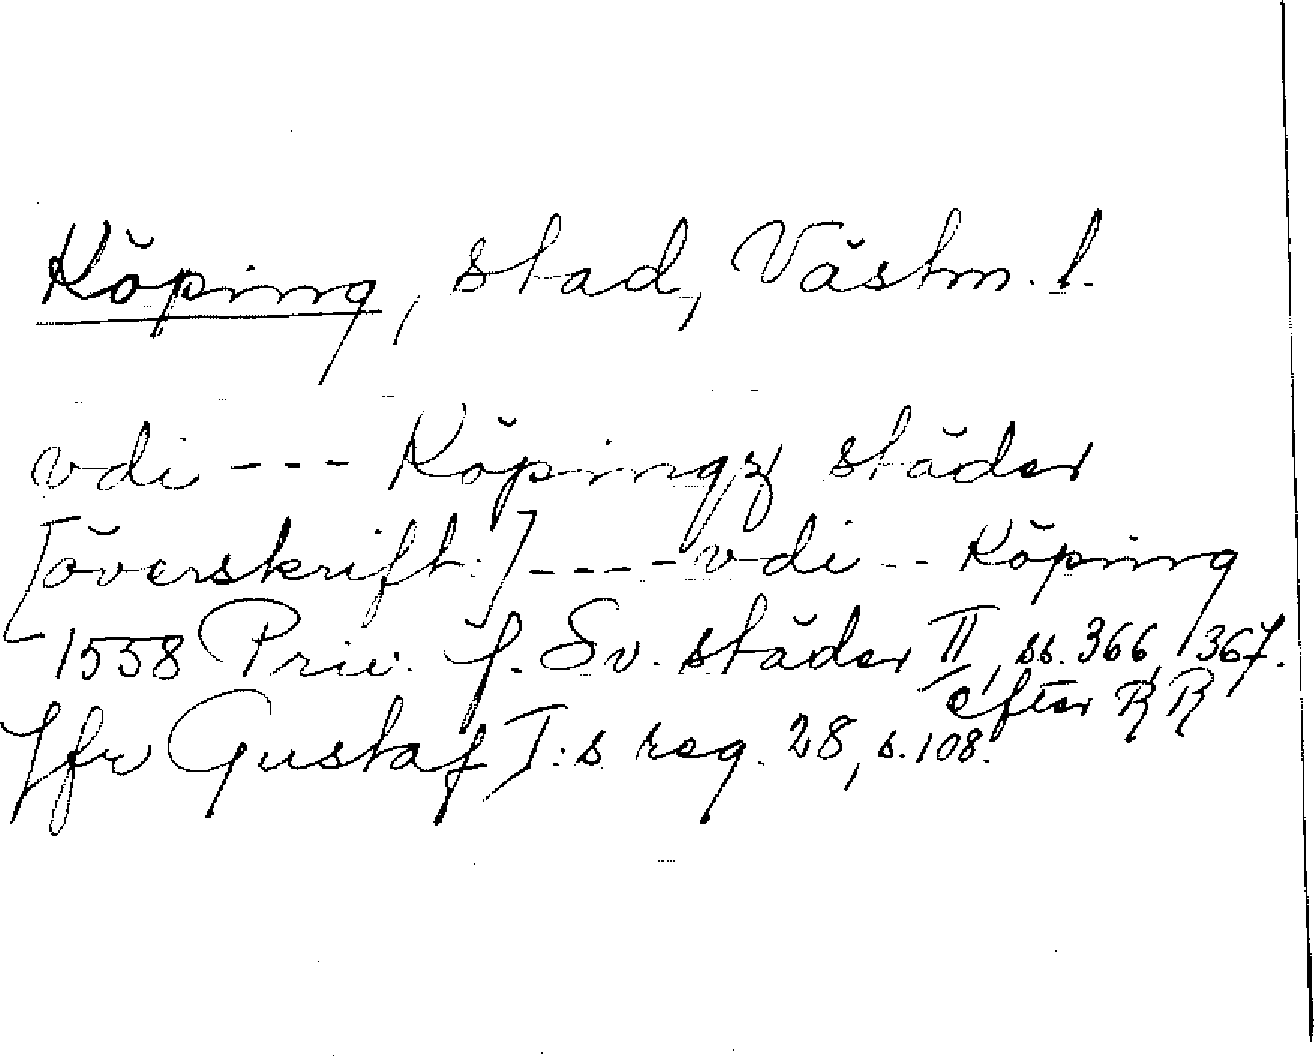 Köping, stad, Västm. l.
vdi --- Köpingz städer
[överskrift.] ---- vdi -- Köping
1558 Priv. f. Sv. städer II, ss. 366, 367.
efter RR
Jfr Gustaf I:s reg. 28, s. 108.